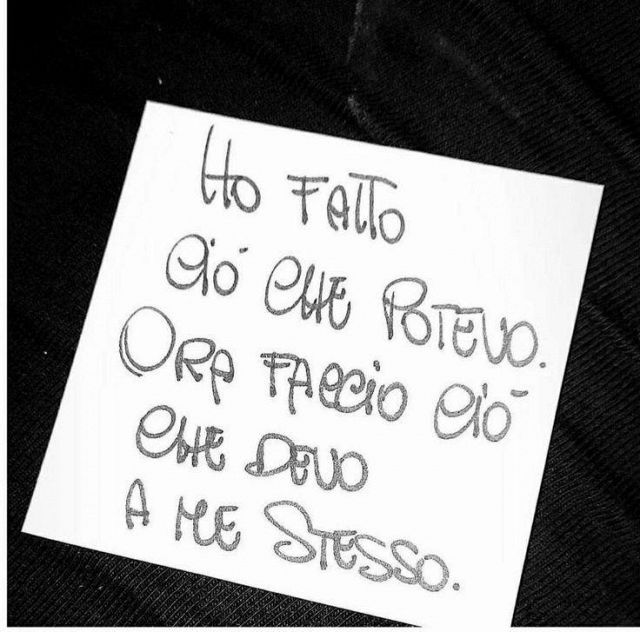 Ho FATTO
Ciò CHE POTEVO.
ORA FACCIO Ciò
CHE DEVO
A ME STESSO.